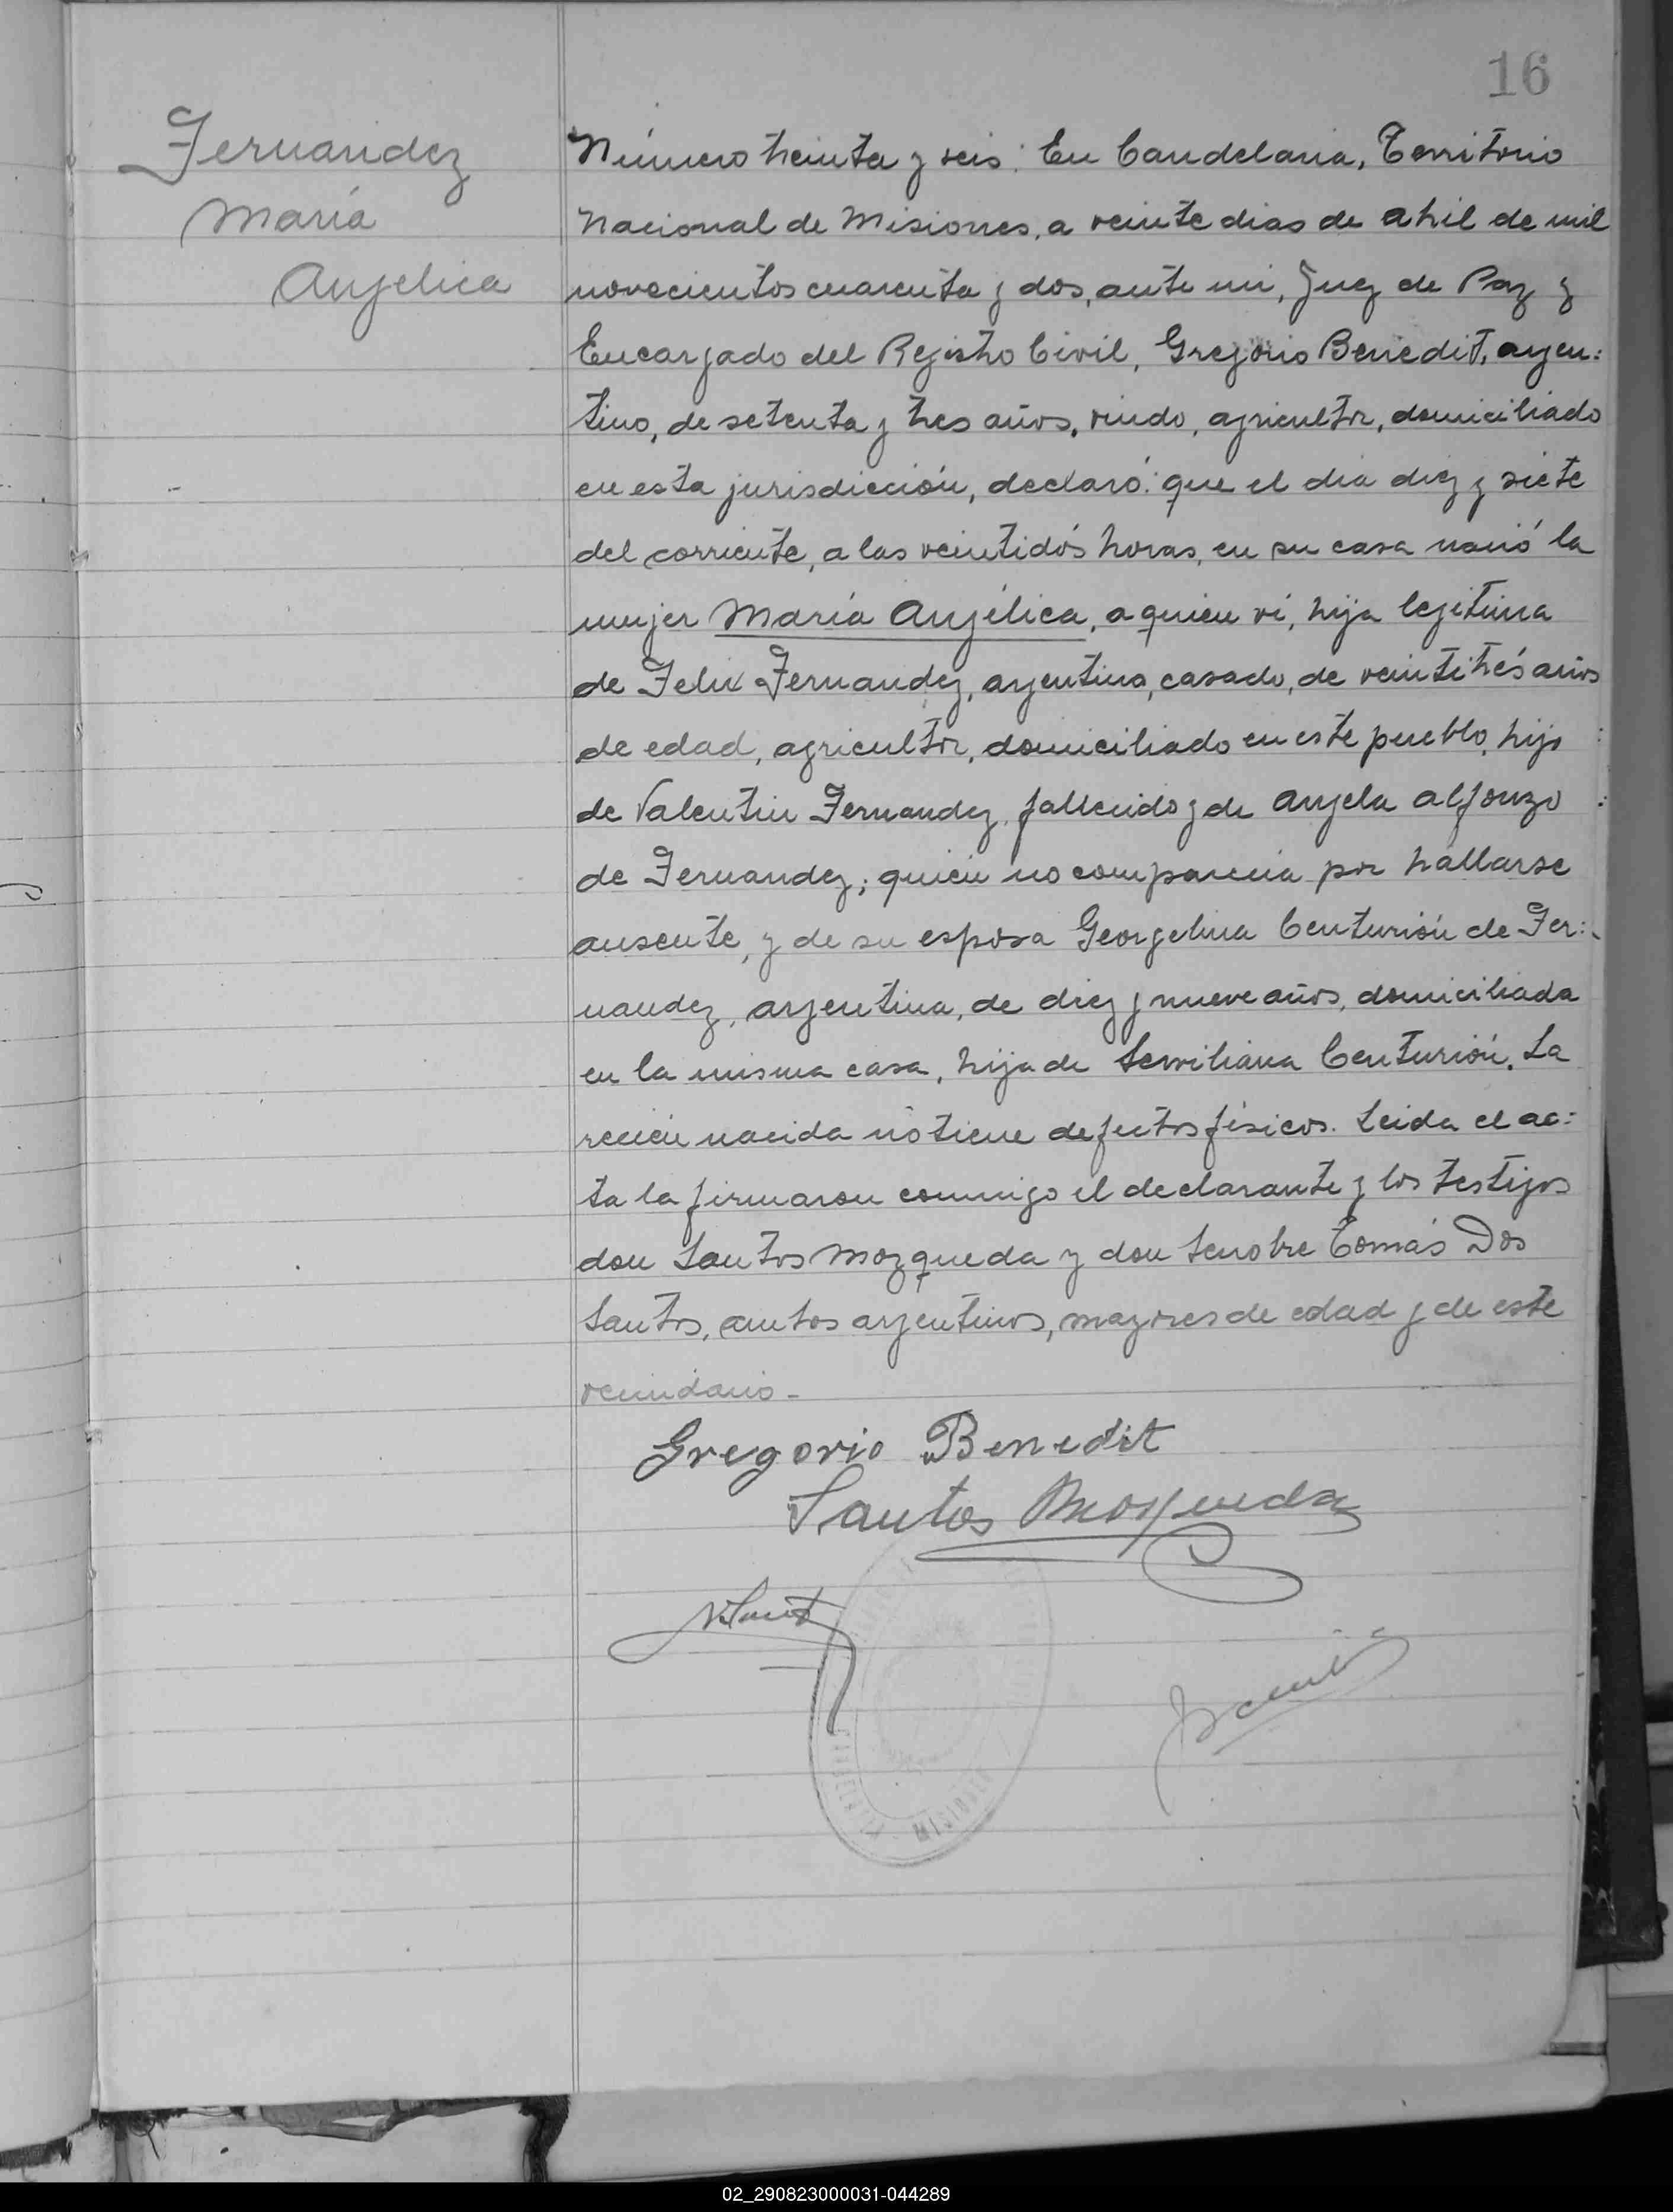 16
Fernandez
María
Angelica
Número treinta y seis: En Candelaria, Territorio
Nacional de Misiones, a veinte dias de abril de mil
novecientos cuarenta y dos, ante mi, Juez de Paz y
Encargado del Registro Civil, Gregorio Benedit, argen:
tino, de setenta y tres años, viudo, agricultor, domiciliado
en esta jurisdicción, declaró: que el dia diez y siete
del corriente, a las veintidós horas, en su casa nació la
mujer María Angélica, a quien vi, hija legitima
de Felix Fernandez, argentino, casado, de veintitrés años
de edad, agricultor, domiciliado en este pueblo, hijo
de Valentin Fernandez, fallecido y de Angela Alfonzo
de Fernandez; quien no comparecia por hallarse
ausente, y de su esposa Georgelina Centurión de Fer:
nandez, argentina, de diez y nueve años, domiciliada
en la misma casa, hija de Serviliana Centurión. La
recien nacida no tiene defectos físicos. Leida el ac:
ta la firmaron conmigo el declarante y los testigos
don Santos Mozqueda y don Senobre Tomás Dos
Santos, ambos argentinos, mayores de edad y de este
vecindario-
Gregorio Benedit
Santos Mosqueda
MISIONES
02_290823000031-044289